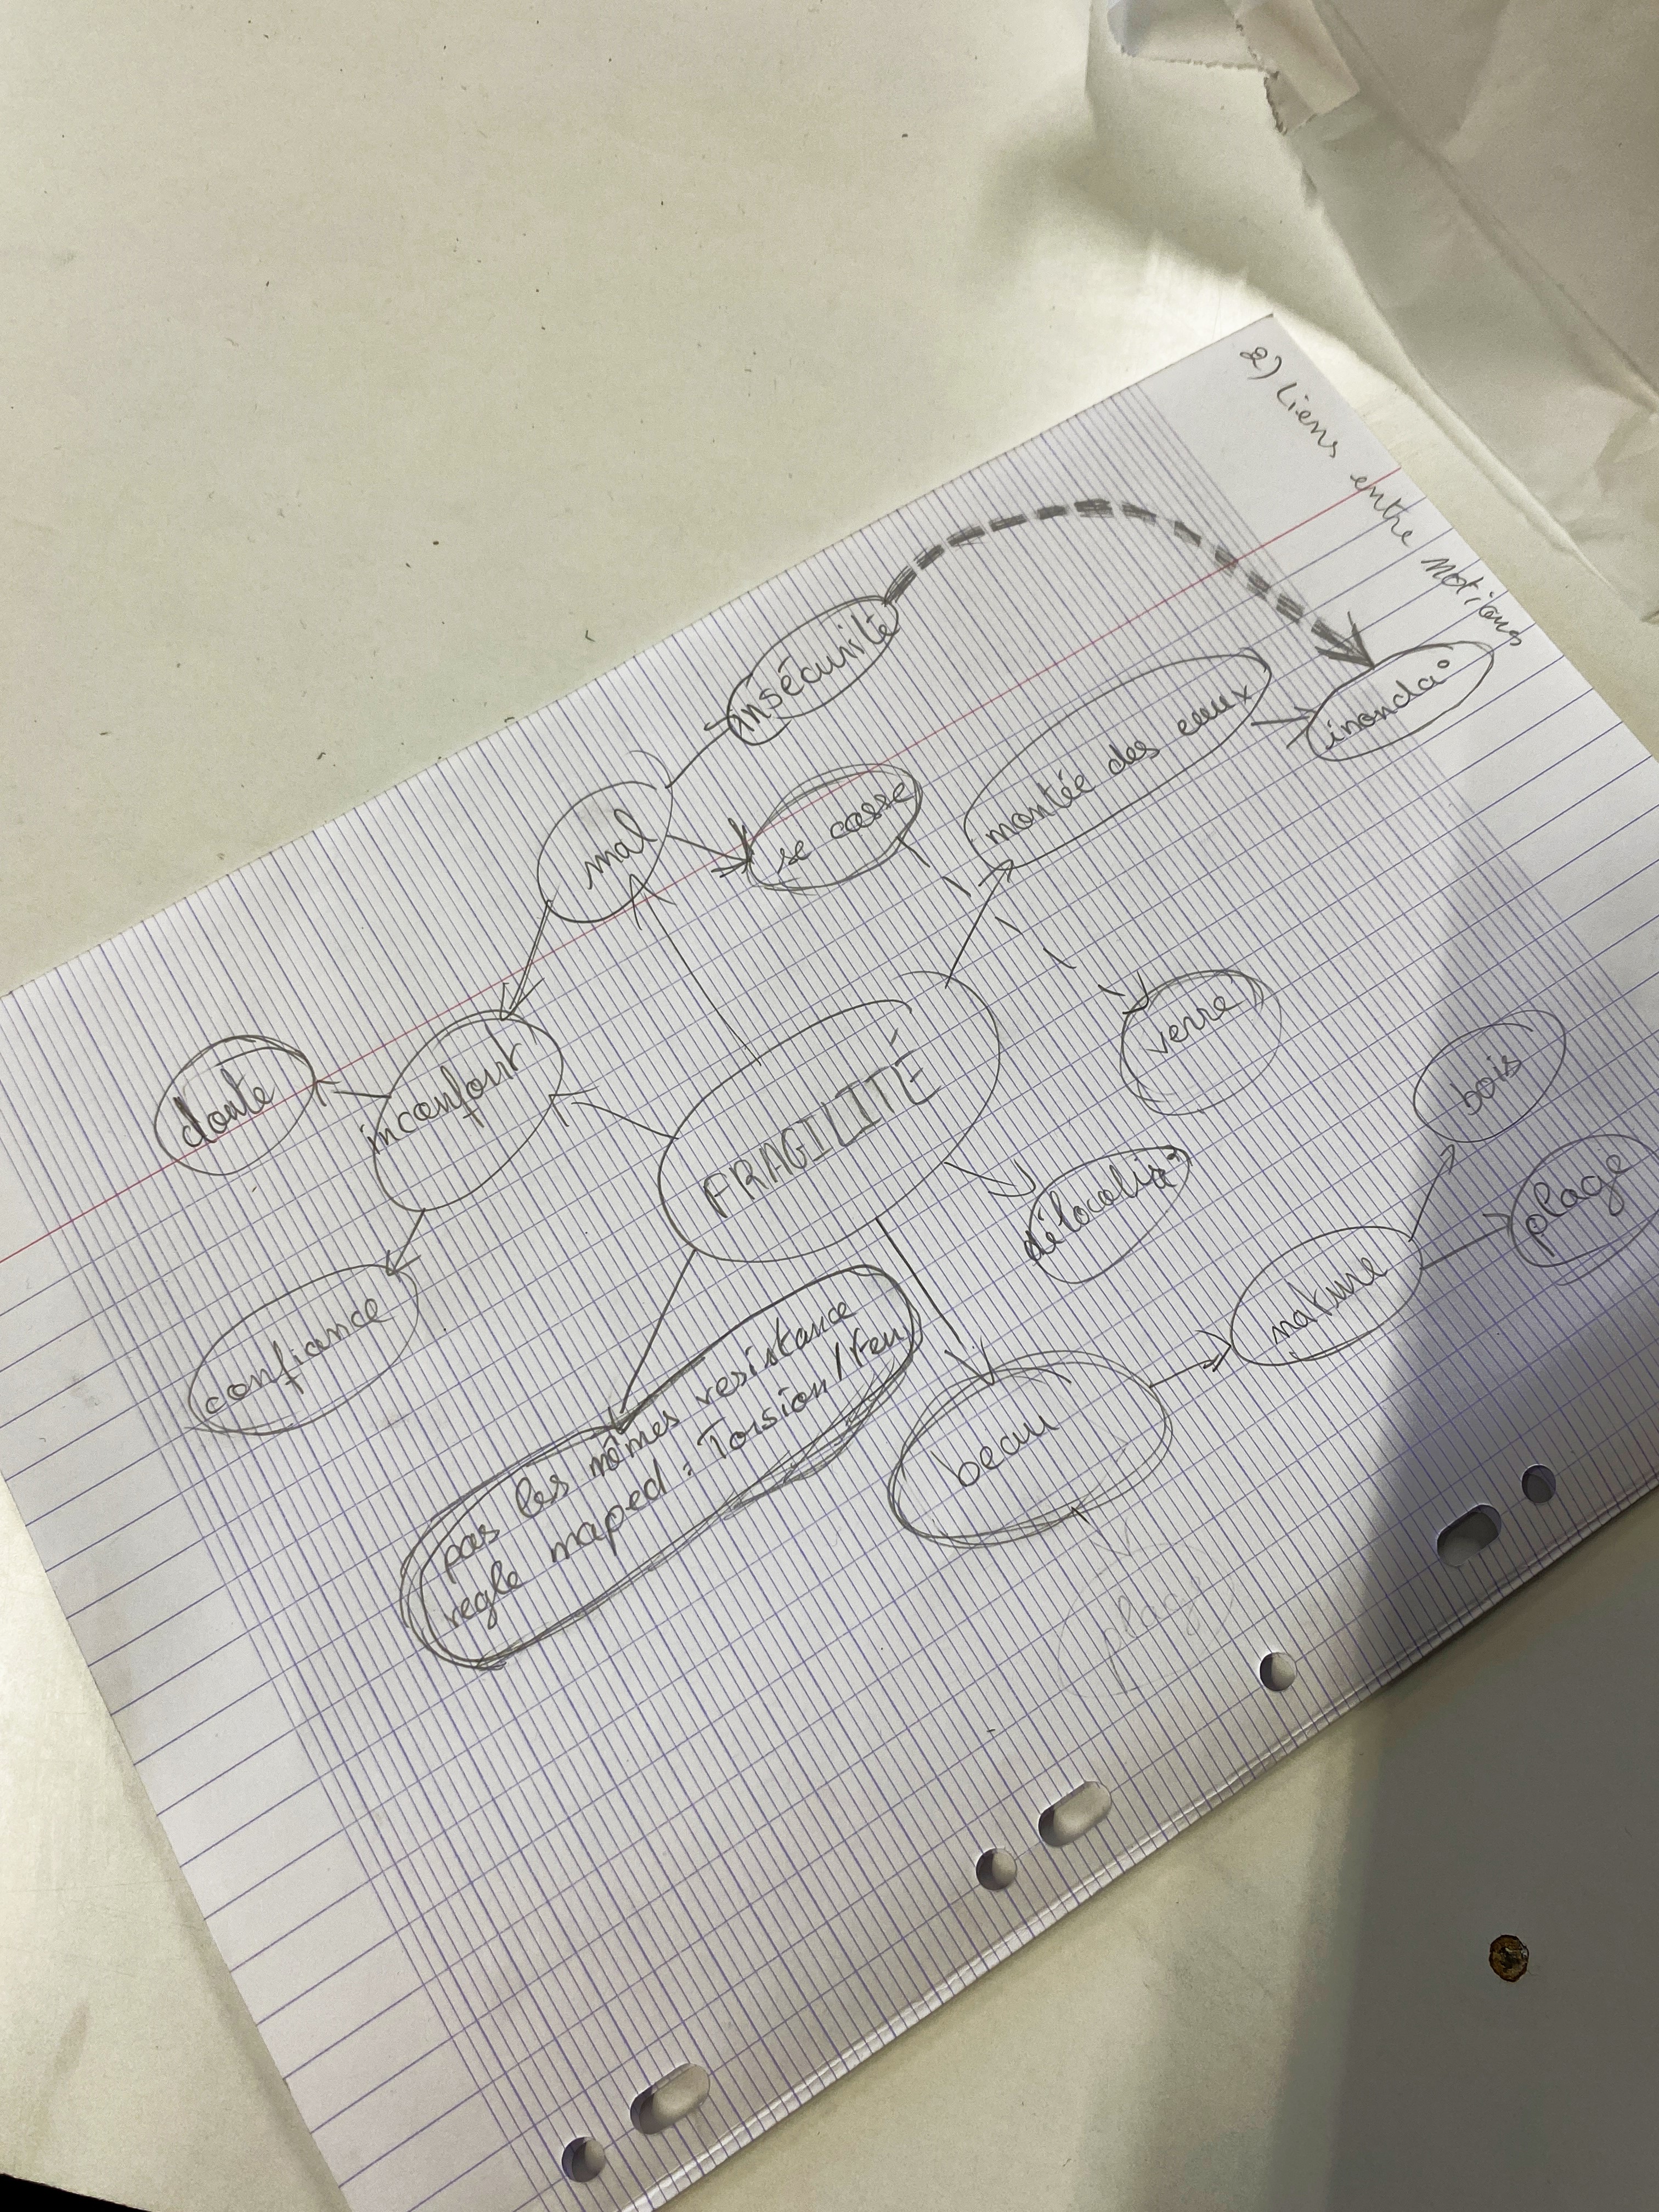 2) Liens entre notions
insécurité
inonda°
montée des eaux
mal
se casse
verre
bois
doute
inconfort
FRAGILITÉ
délocalis°
nature
plage
confiance
pas les mêmes resistance
regle maped : Torsion/feu
beau
plage